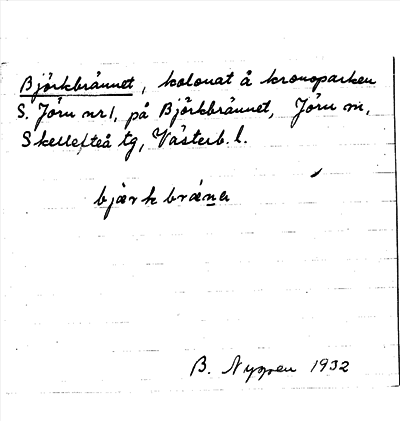 Björkbrännet, kolonat å kronoparken
S. Jörn nr 1, på Björkbrännet, Jörn sn,
Skellefteå tg, Västerb. l.
bjärkbräna
B. Nygren 1932